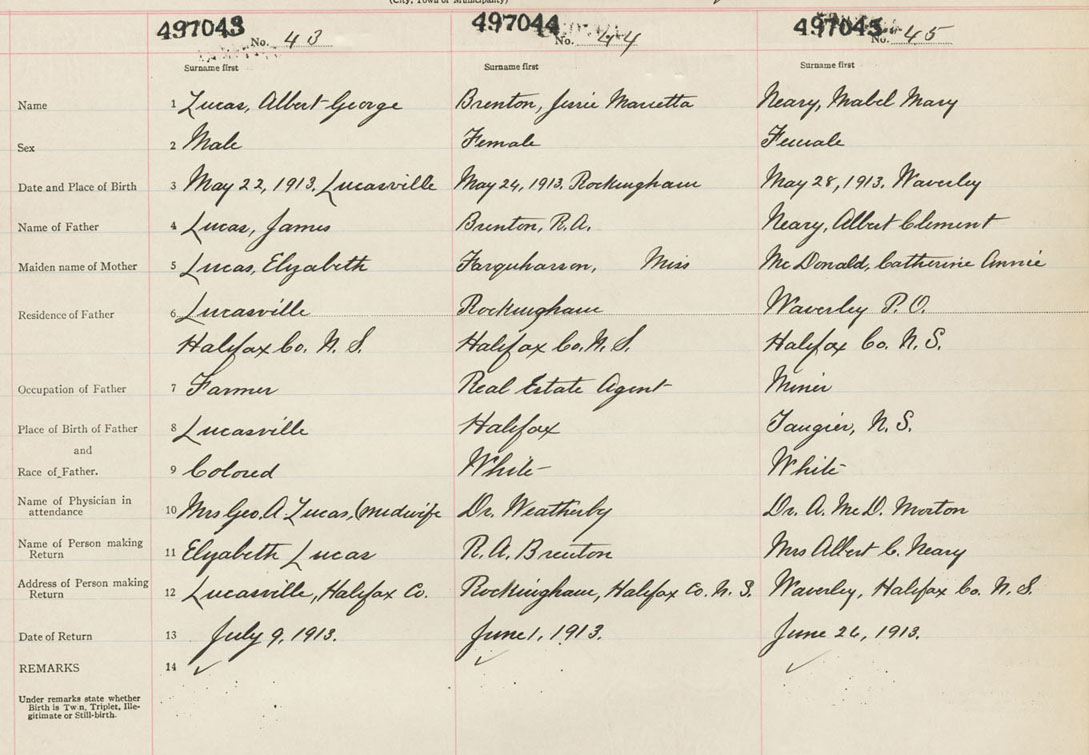 (City, Town or Municipality)
497043 No. 43 497044 No. 44 497045 No. 45
Surname first Surname first Surname first
Name 1 Lucas, Albert George Brenton, Jessie Marietta Neary, Mabel Mary
Sex 2 Male Female Female
Date and Place of Birth 3 May 22, 1913. Lucasville May 24, 1913. Rockingham May 28, 1913. Waverley
Name of Father 4 Lucas, James Brenton, R.A. Neary, Albert Clement
Maiden name of Mother 5 Lucas, Elizabeth Farquharson, Miss McDonald, Catherine Annie
Residence of Father 6 Lucasville Rockingham Waverley P.O.
Halifax Co. N. S. Halifax Co. N. S. Halifax Co. N. S.
Occupation of Father 7 Farmer Real Estate Agent Miner
Place of Birth of Father 8 Lucasville Halifax Tangier, N. S.
and
Race of Father. 9 Colored White White
Name of Physician in
attendance 10 Mrs Geo. A Lucas, (midwife Dr. Weatherby Dr. A. McD. Morton
Name of Person making
Return 11 Elizabeth Lucas R.A. Brenton Mrs Albert C. Neary
Address of Person making
Return 12 Lucasville, Halifax Co. Rockingham, Halifax Co. N. S. Waverley, Halifax Co. N. S.
Date of Return 13 July 9, 1913. June 1, 1913. June 26, 1913.
REMARKS 14
Under remarks state whether
Birth is Twin, Triplet, Ille-
gitimate or Still-birth.